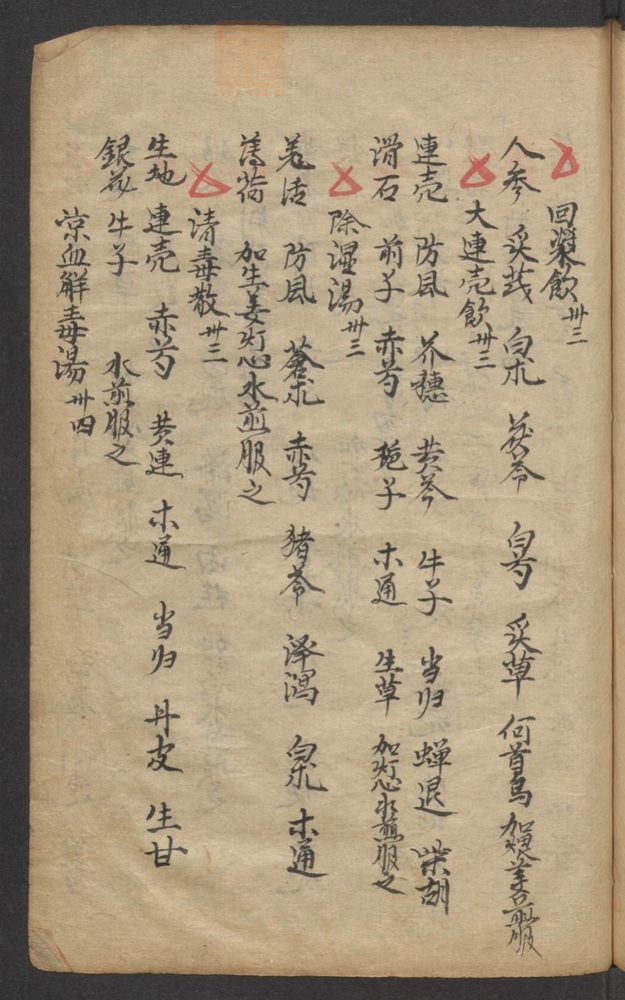 回漿飲 卅三
人參 炙芪 白朮 茯苓 白芍 炙草 何首烏 加煨姜煎服
大連壳飲 卅三
連壳 防風 芥穗 黄芩 牛子 当归 蟬退 柴胡
滑石 前子 赤芍 梔子 木通 生草 加灯心水煎服之
除湿湯 卅三
羌活 防風 蒼朮 赤芍 猪苓 泽瀉 白朮 木通
薄荷 加生姜灯心水煎服之
清毒散 卅三
生地 連壳 赤芍 黄連 木通 当归 丹皮 生甘
銀花 牛子 水煎服之
凉血解毒湯 卅四